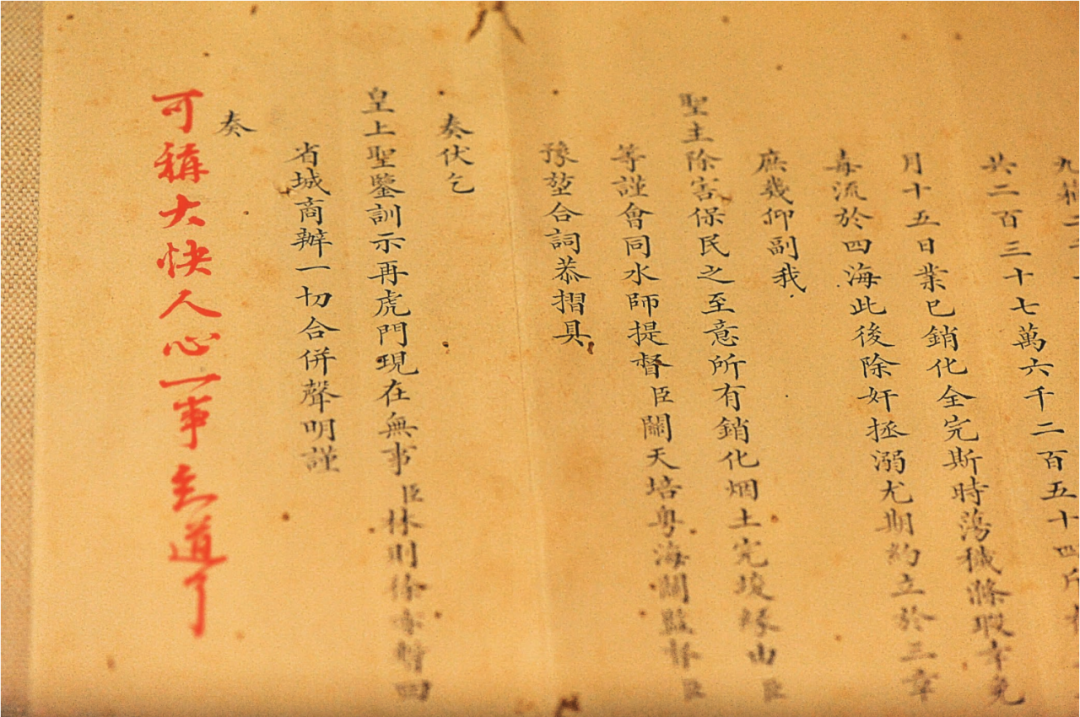 共二百三十七萬六千二百五十四斤
月十五日業已銷化全完斯時蕩穢滌瑕幸免
毒流於四海此後除奸拯溺尤期約立於三章
庶幾仰副我
聖主除害保民之至意所有銷化烟土完竣緣由臣
等謹會同水師提督臣關天培粵海關監督臣
豫堃合詞恭摺具
奏伏乞
皇上聖鑒訓示再虎門現在無事臣林則徐亦暫回
省城商辦一切合併聲明謹
奏
可稱大快人心一事知道了